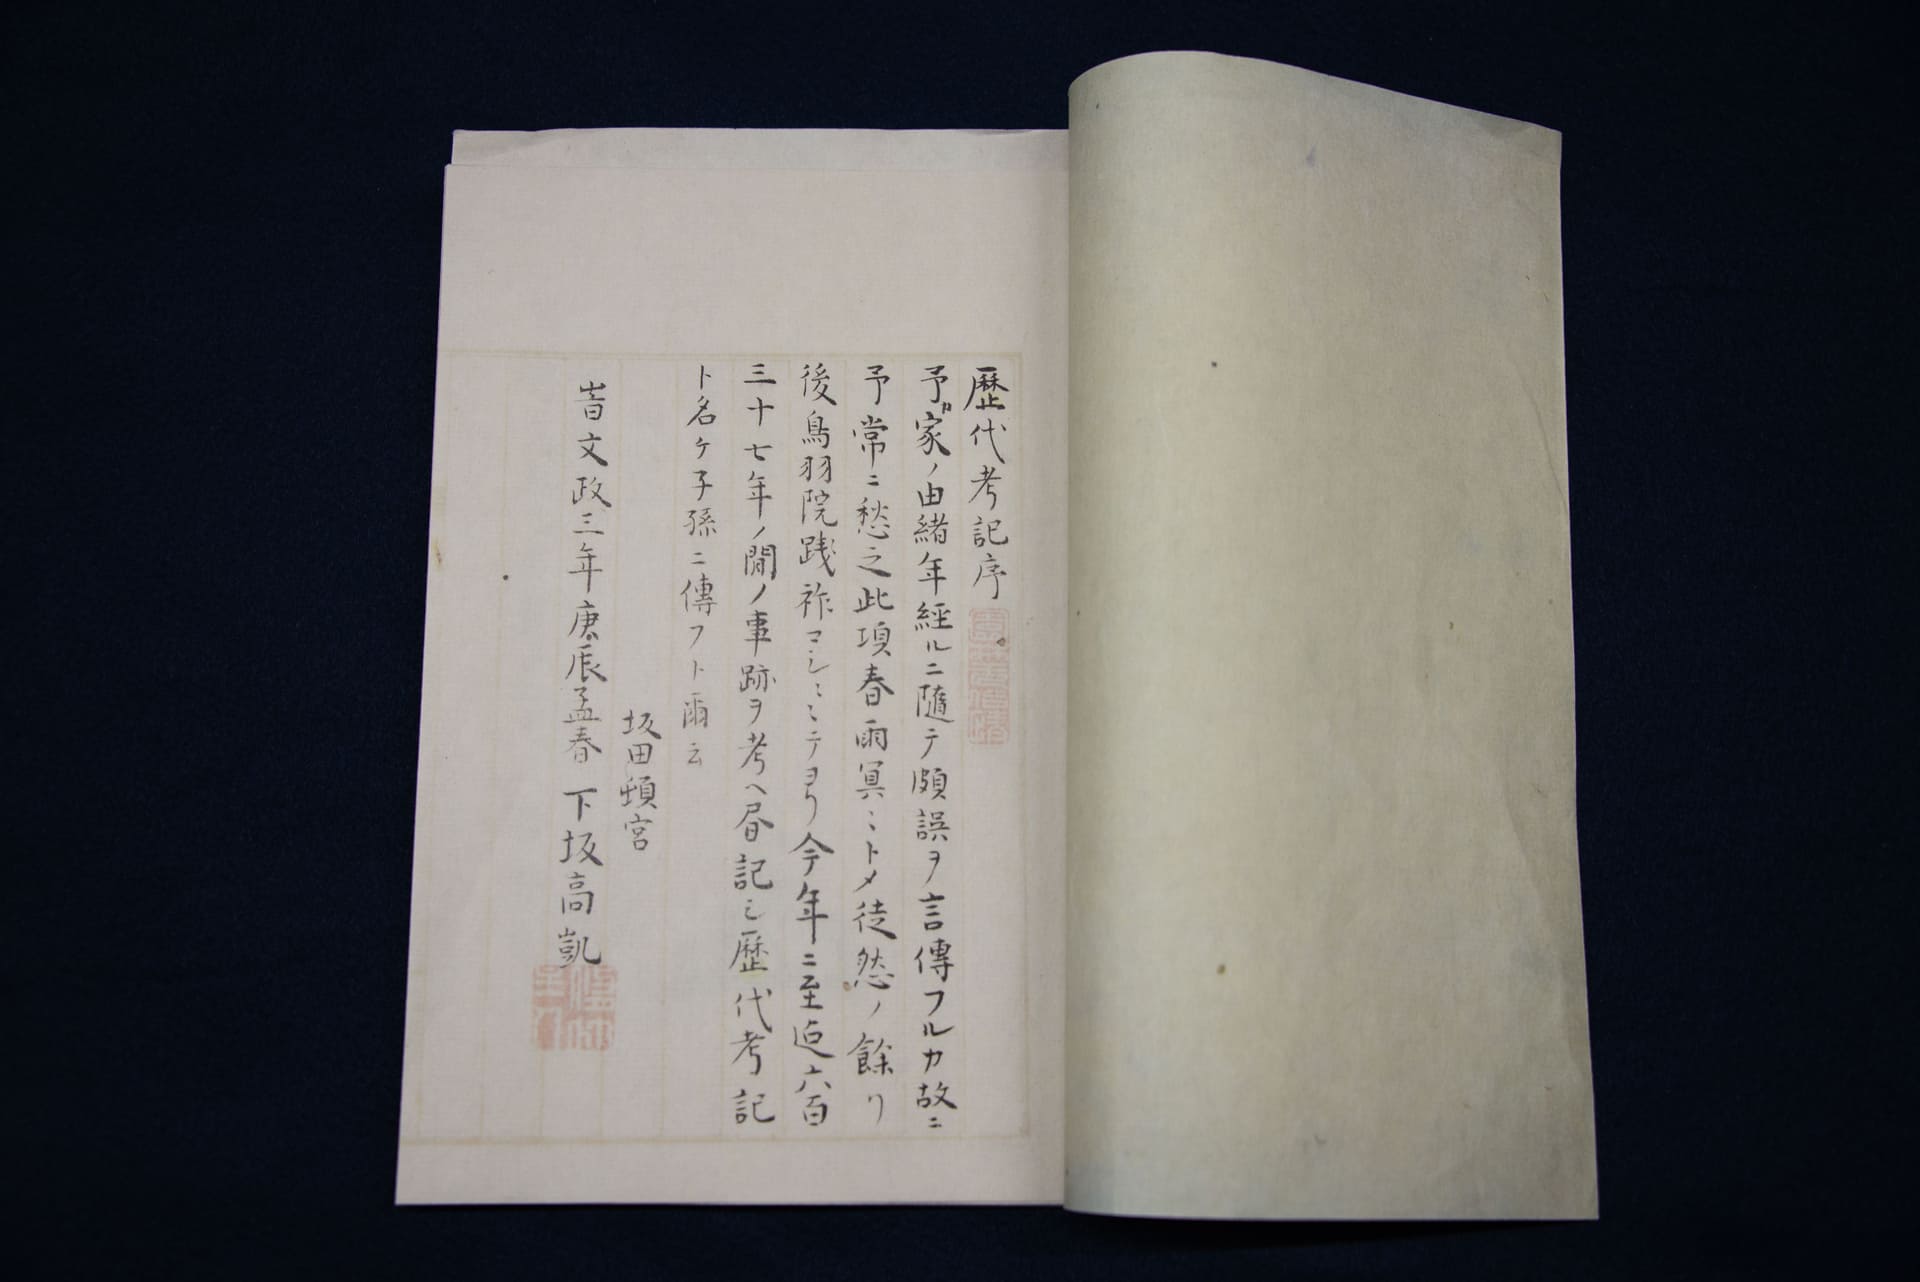 歴代考記序
予ガ家ノ由緒年経ルニ隨テ頗誤ヲ言傳フルカ故ニ
予常ニ愁之此項春雨冥ミトメ徒然ノ餘リ
後鳥羽院践祚マシミミテヨリ今年ニ至迠六百
三十七年ノ間ノ事跡ヲ考ヘ畧記シ歴代考記
ト名ケ子孫ニ傳フト爾云
坂田頓宮
旹文政三年庚辰孟春 下坂高凱